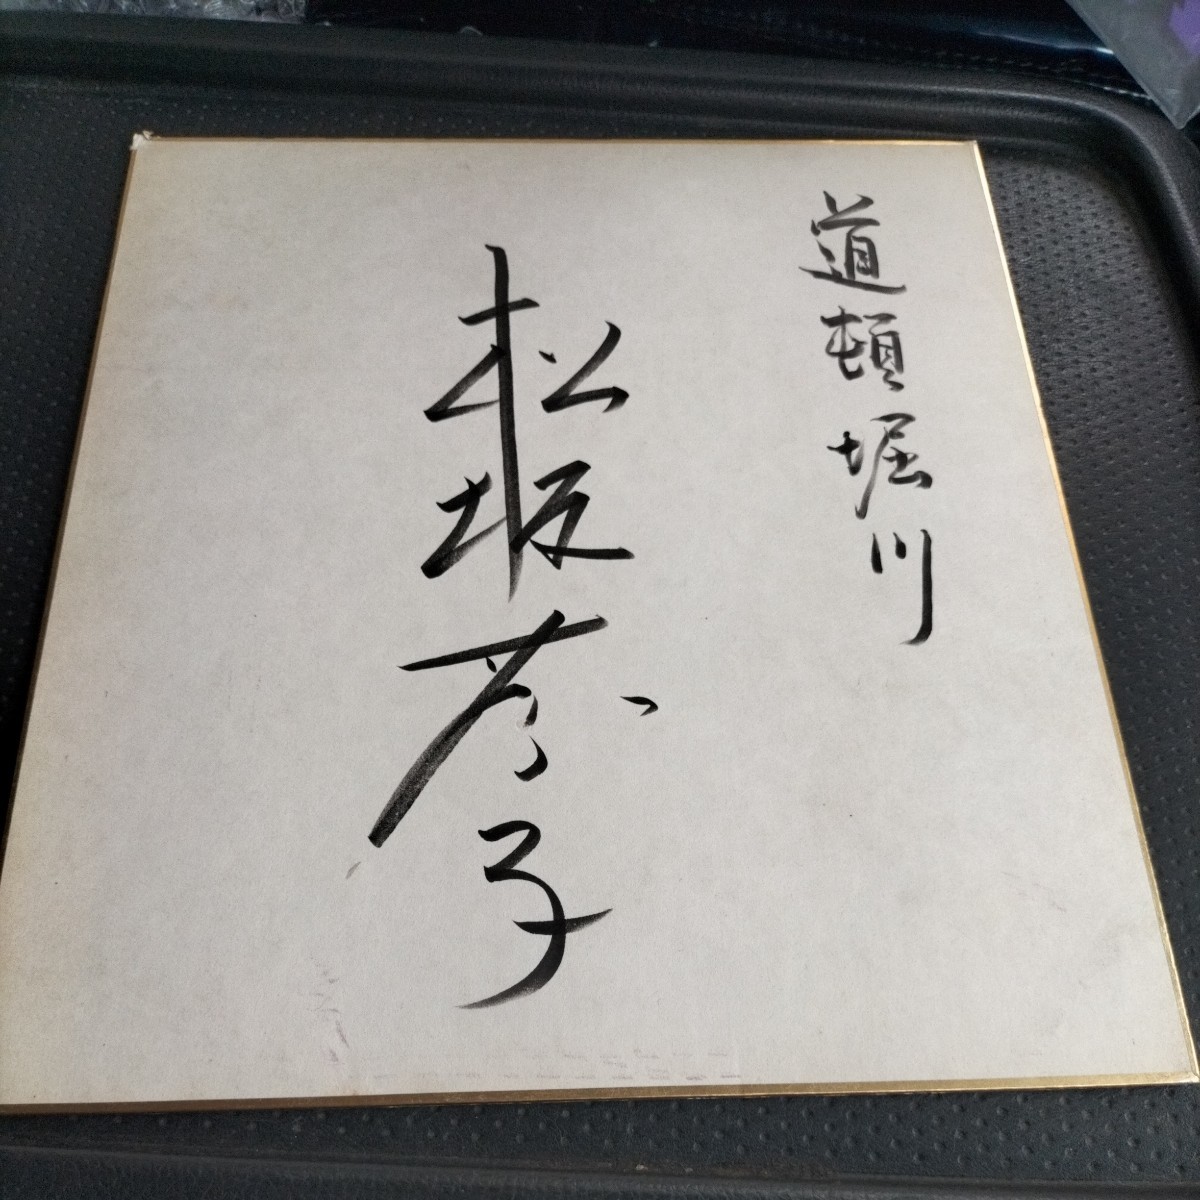 道頓堀川
松坂慶子